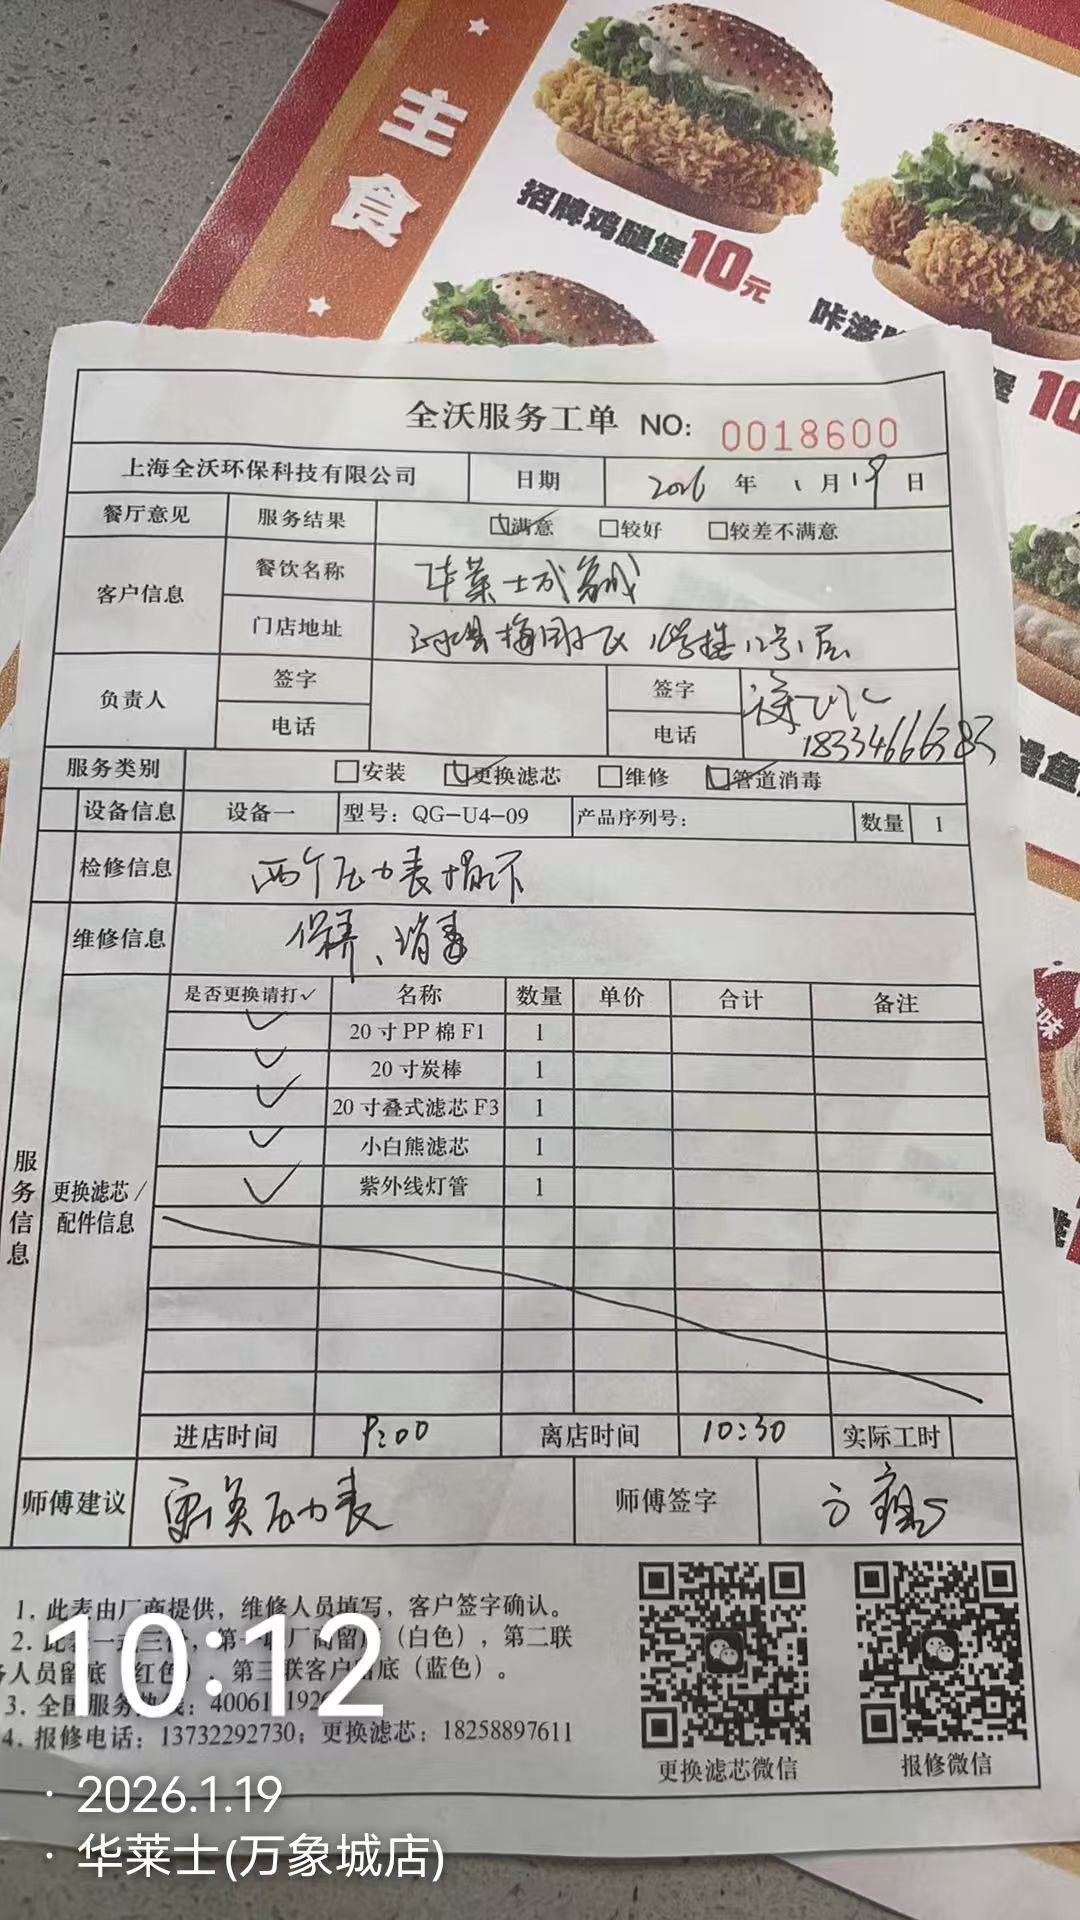 主食
招牌鸡腿堡10元
咔滋
堡10
全沃服务工单 NO: 0018600
上海全沃环保科技有限公司 日期 2026年1月19日
餐厅意见 服务结果 ☑满意 □较好 □较差不满意
客户信息 餐饮名称 华莱士
门店地址 泗水县梅园小区 号楼 号1层
负责人 签字 签字
电话 电话
服务类别 □安装 ☑更换滤芯 □维修 ☑管道消毒
设备信息 设备一 型号：QG-U4-09 产品序列号： 数量 1
检修信息 两个压力表损坏
维修信息 保养、消毒
是否更换请打✓ 名称 数量 单价 合计 备注
✓ 20寸PP棉F1 1
✓ 20寸炭棒 1
✓ 20寸叠式滤芯F3 1
✓ 小白熊滤芯 1
✓ 紫外线灯管 1
服务信息
更换滤芯/
配件信息
进店时间 9:00 离店时间 10:30 实际工时
师傅建议 需换压力表 师傅签字
1. 此表由厂商提供，维修人员填写，客户签字确认。
2. 此表一式三份，第一联厂商留底（白色），第二联
务人员留底（红色），第三联客户留底（蓝色）。
3. 全国服务热线：40061 192
4. 报修电话：13732292730；更换滤芯：18258897611
更换滤芯微信
报修微信
10:12
· 2026.1.19
· 华莱士(万象城店)